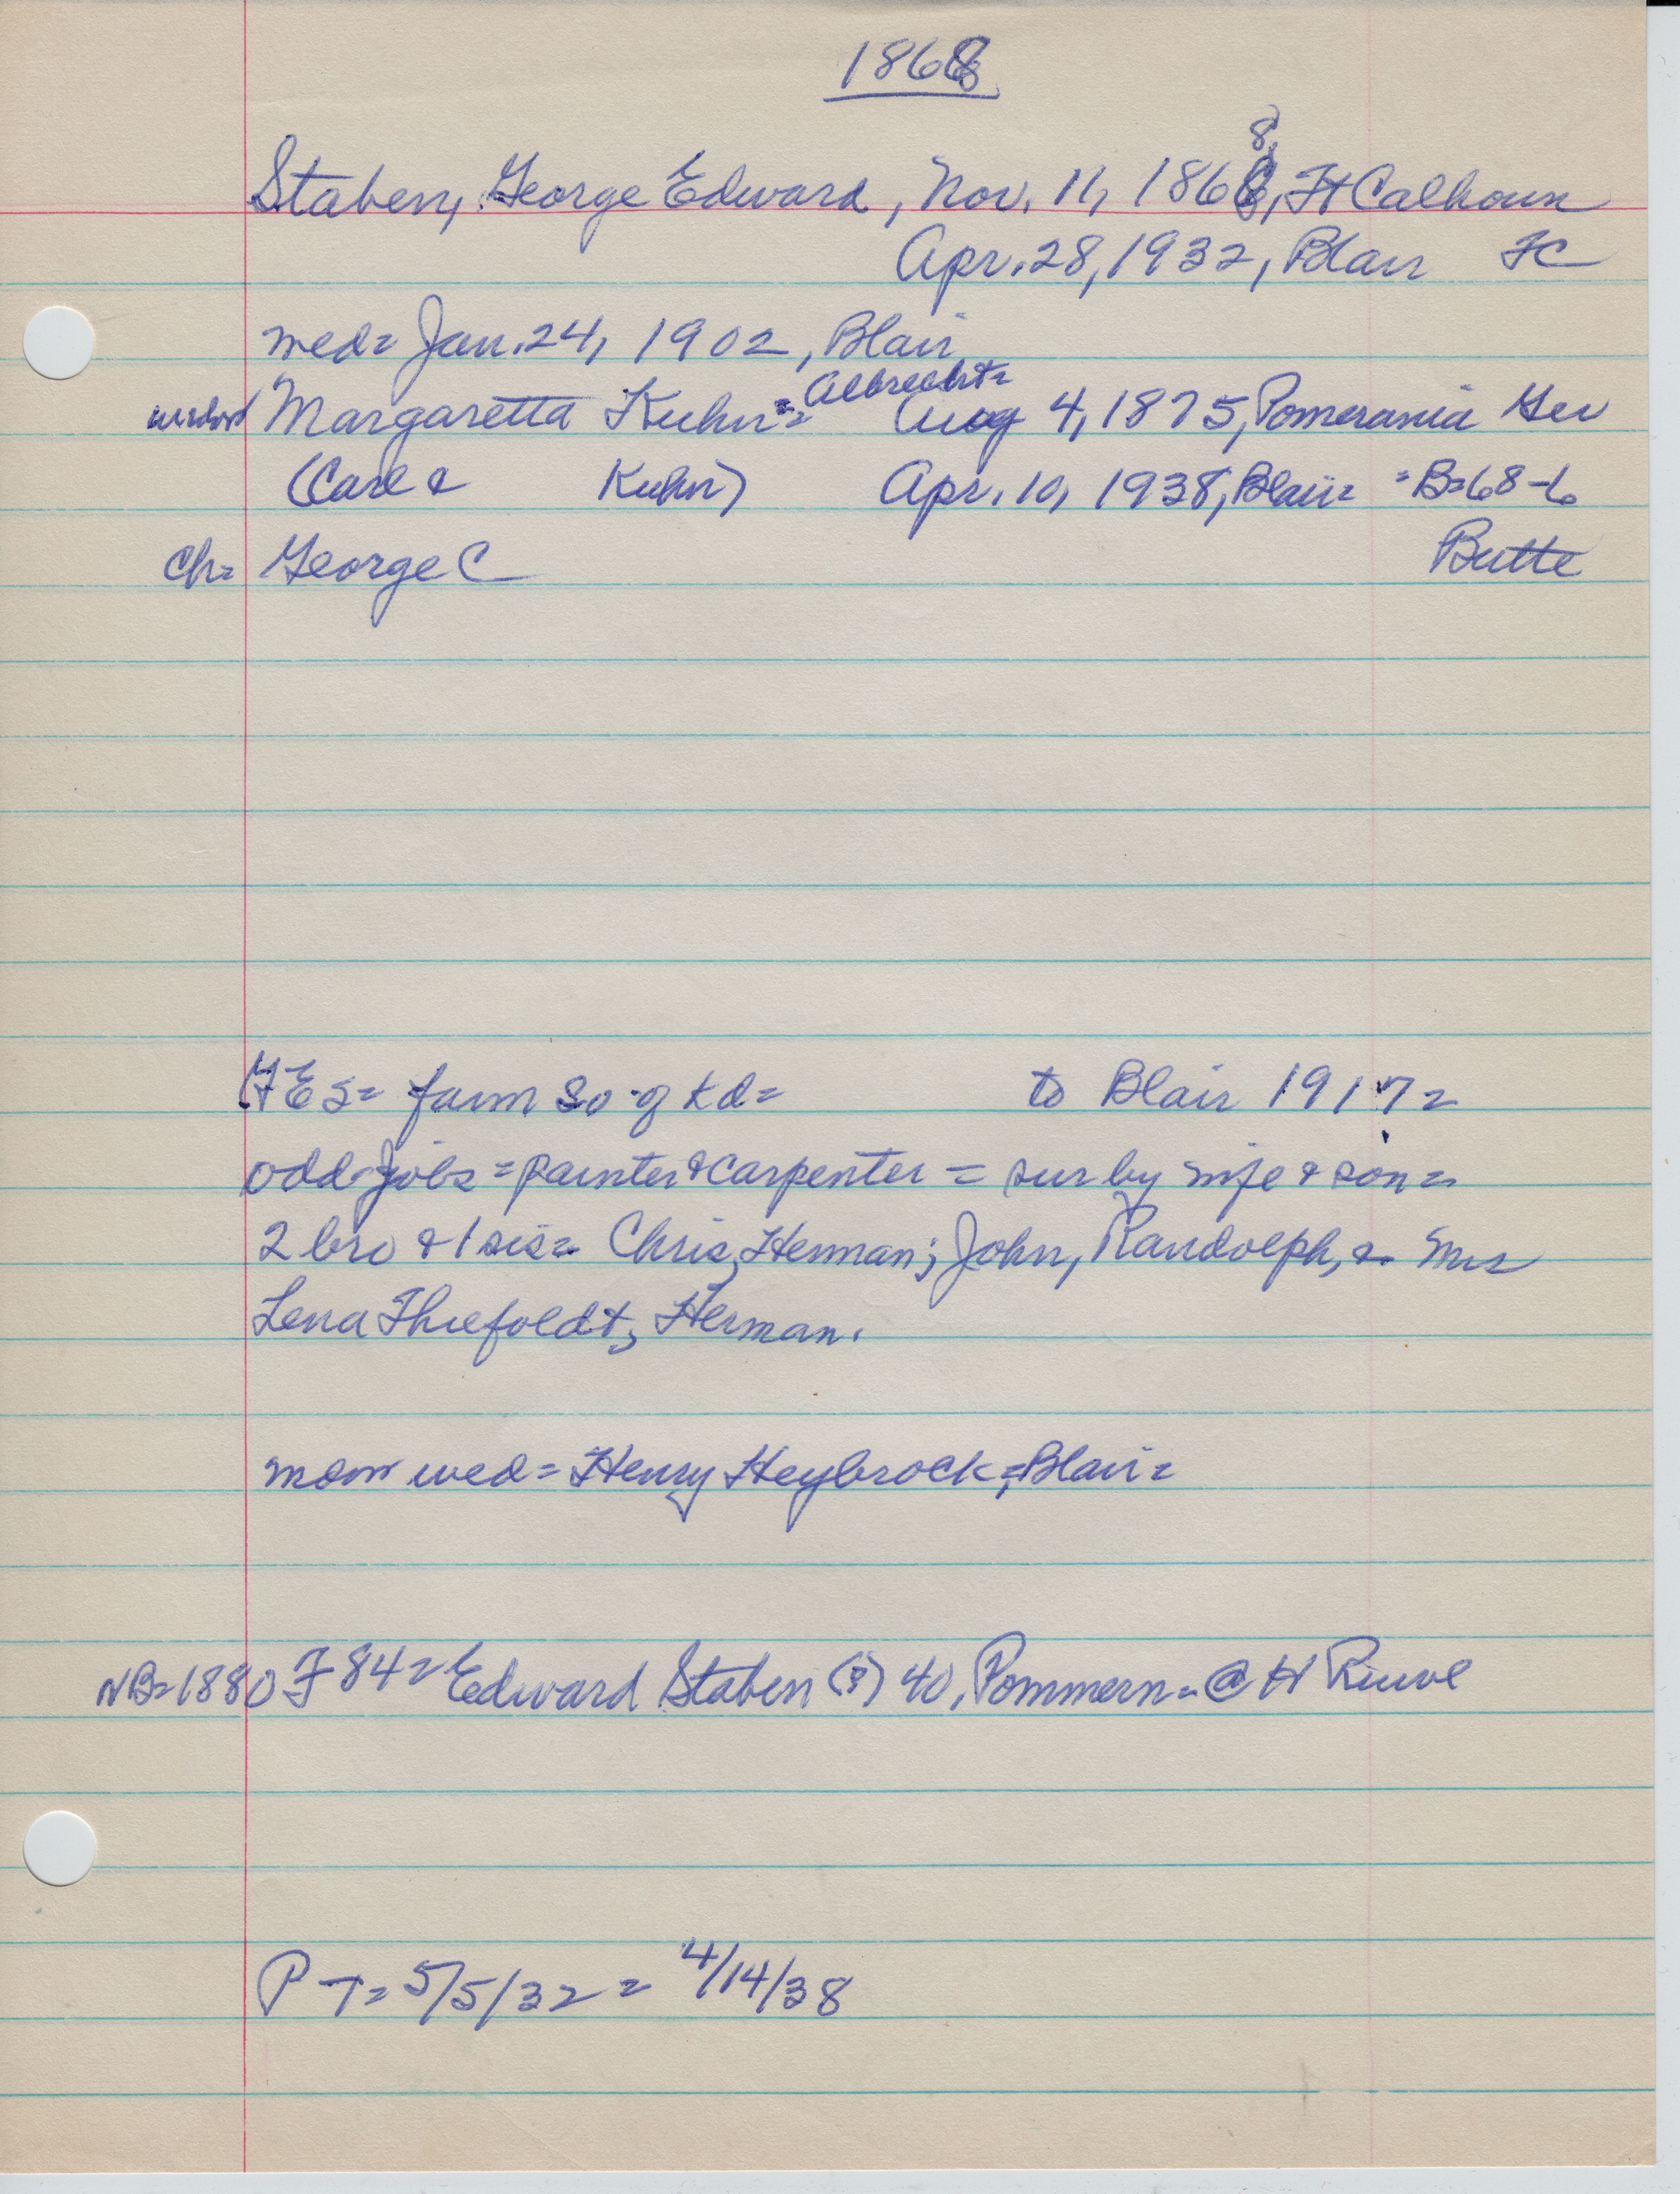 1868
8
Staben, George Edward, Nov. 11, 1868, Ft Calhoun
Apr. 28, 1932, Blair FC
wed= Jan. 24, 1902, Blair
= Albrecht=
widow Margaretta Kuhn= Aug 4, 1875, Pomerania Ger
(Carl & Kuhn) Apr. 10, 1938, Blair= =B=68-6
ch= George C Butte
GES= farm so of Kd= to Blair 1917=
odd jobs = painter & carpenter = sur by wife & son =
2 bro & 1 sis= Chris, Herman; John, Randolph, & Mrs
Lena Thiefoldt, Herman.
mom wed = Henry Heybrock, Blair=
NB=1880 F 84= Edward Staben (?) 40, Pommern = @ H
P T= 5/5/32 = 4/14/38